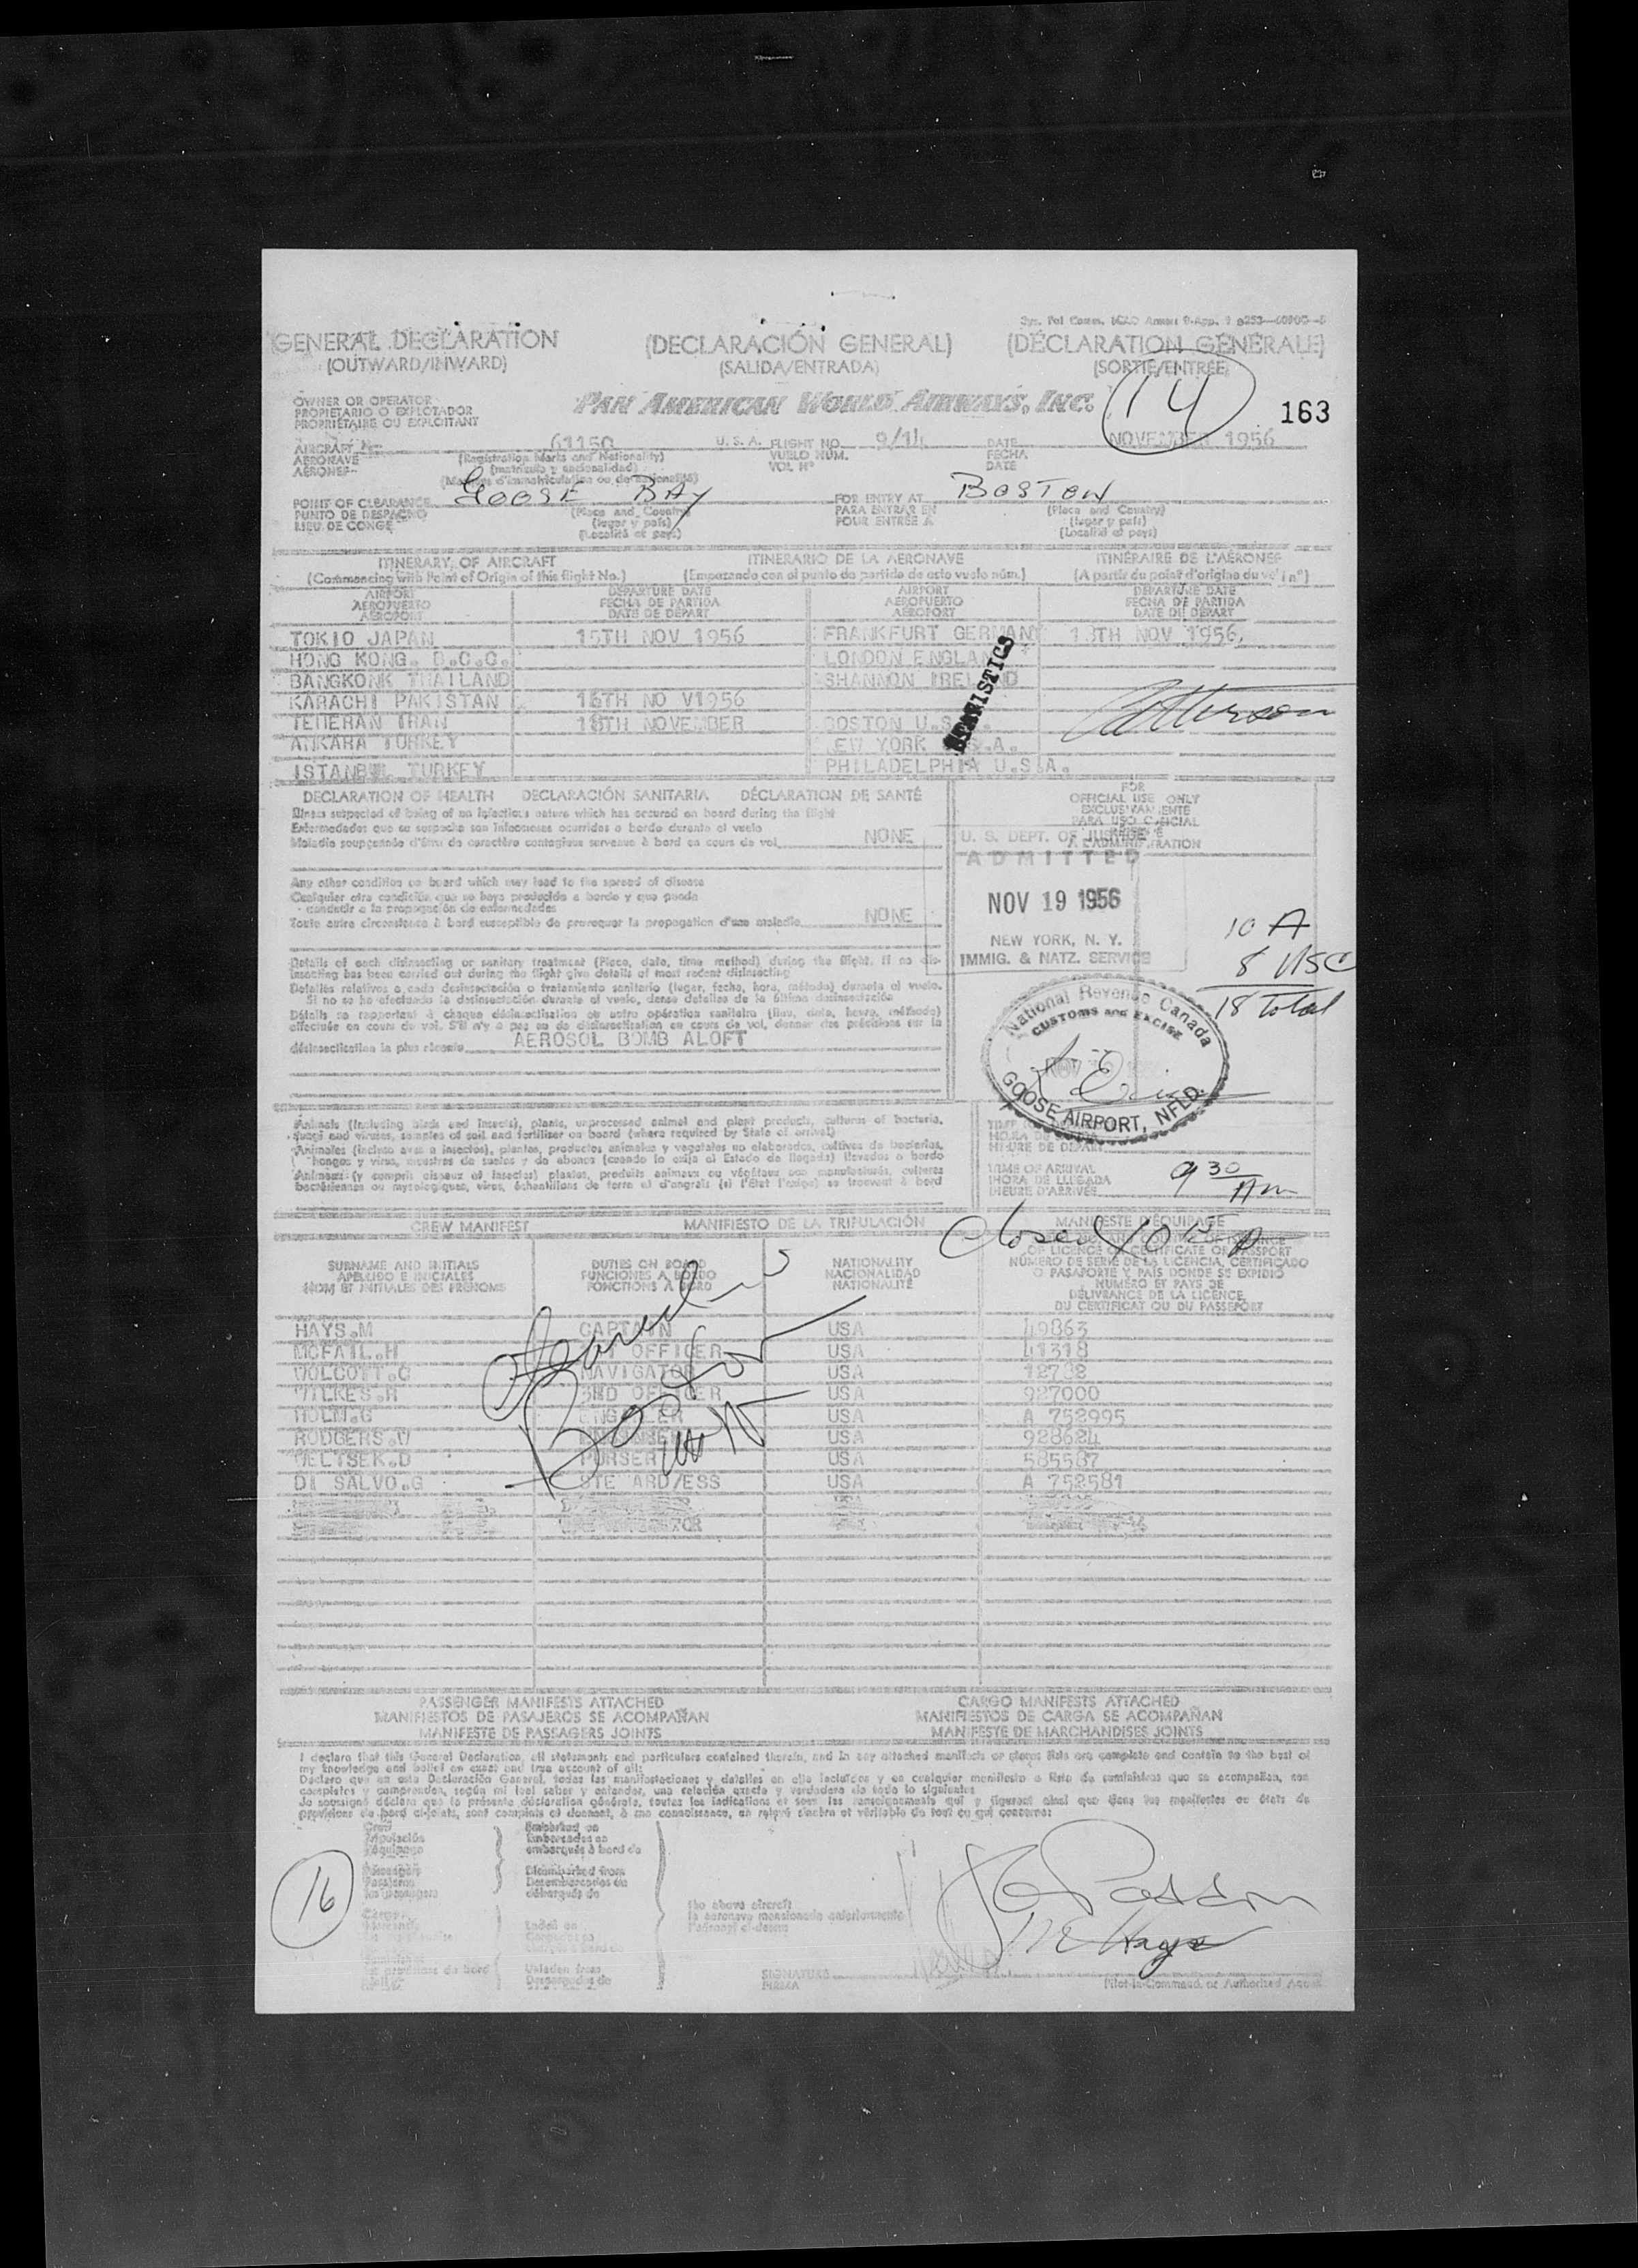 GENERAL DECLARATION (DECLARACIÓN GENERAL) (DÉCLARATION GÉNÉRALE)
(OUTWARD/INWARD) (SALIDA/ENTRADA) (SORTIE/ENTRÉE)
14
OWNER OR OPERATOR PAN AMERICAN WORLD AIRWAYS, INC. 163
PROPIETARIO O EXPLOTADOR
PROPRIÉTAIRE OU EXPLOITANT
AIRCRAFT No. 61150 U. S. A. FLIGHT NO. 9/14 DATE NOVEMBER 1956
AERONAVE (Registration Marks and Nationality) VUELO NÚM. FECHA
AÉRONEF (matrícula y nacionalidad) VOL Nº DATE
(Marques d'immatriculation ou de nationalité)
POINT OF CLEARANCE GOOSE BAY FOR ENTRY AT BOSTON
PUNTO DE DESPACHO (Place and Country) PARA ENTRAR EN (Place and Country)
LIEU DE CONGÉ (lugar y país) POUR ENTRÉE A (lugar y país)
(Localité et pays) (Localité et pays)
ITINERARY OF AIRCRAFT ITINERARIO DE LA AERONAVE ITINÉRAIRE DE L'AÉRONEF
(Commencing with Point of Origin of this flight No.) (Empezando con el punto de partida de este vuelo núm.) (A partir du point d'origine du vol nº)
AIRPORT DEPARTURE DATE AIRPORT DEPARTURE DATE
AEROPUERTO FECHA DE PARTIDA AEROPUERTO FECHA DE PARTIDA
AÉROPORT DATE DE DÉPART AÉROPORT DATE DE DÉPART
TOKIO JAPAN 15TH NOV 1956 FRANKFURT GERMANY 18TH NOV 1956,
HONG KONG. B.C.C. LONDON ENGLAND
BANGKONK THAILAND SHANNON IRELAND
KARACHI PAKISTAN 16TH NO V1956
TEHERAN IRAN 18TH NOVEMBER BOSTON U.S.A.
ANKARA TURKEY NEW YORK U.S.A.
ISTANBUL TURKEY PHILADELPHIA U.S.A.
DECLARATION OF HEALTH DECLARACIÓN SANITARIA DÉCLARATION DE SANTÉ
FOR
OFFICIAL USE ONLY
EXCLUSIVAMENTE
PARA USO OFICIAL
Illness suspected of being of an infectious nature which has occured on board during the flight
Enfermedades que se sospecha son infecciosas ocurridas a bordo durante el vuelo
Maladie soupçonnée d'être de caractère contagieux survenue à bord en cours de vol NONE
U. S. DEPT. OF JUSTICE
ADMITTED
NOV 19 1956
NEW YORK, N. Y.
IMMIG. & NATZ. SERVICE
Any other condition on board which may lead to the spread of disease
Cualquier otra condición que se haya producido a bordo y que pueda
conducir a la propagación de enfermedades
Toute autre circonstance à bord susceptible de provoquer la propagation d'une maladie NONE
10 A
8 USC
18 Total
Details of each disinsecting or sanitary treatment (Place, date, time method) during the flight. If no dis-
insecting has been carried out during the flight give details of most recent disinsecting
Detalles relativos a cada desinsectación o tratamiento sanitario (lugar, fecha, hora, método) durante el vuelo.
Si no se ha efectuado la desinsectación durante el vuelo, dense detalles de la última desinsectación
Détails se rapportant à chaque désinsectisation ou autre opération sanitaire (lieu, date, heure, méthode)
effectuée en cours de vol. S'il n'y a pas eu de désinsectisation en cours de vol, donner des précisions sur la
désinsectisation la plus récente AEROSOL BOMB ALOFT
National Revenue Canada
CUSTOMS and EXCISE
GOOSE AIRPORT, NFLD.
Animals (including birds and insects), plants, unprocessed animal and plant products, cultures of bacteria,
fungi and viruses, samples of soil and fertiliser on board (where required by State of arrival)
Animales (incluso aves e insectos), plantas, productos animales y vegetales no elaborados, cultivos de bacterias,
hongos y virus, muestras de suelos y de abonos (cuando lo exija el Estado de llegada) llevados a bordo
Animaux (y compris oiseaux et insectes) plantes, produits animaux ou végétaux non manufacturés, cultures
bactériennes ou mycologiques, virus, échantillons de terre et d'engrais (si l'État l'exige) se trouvant à bord
HEURE DE DÉPART
TIME OF ARRIVAL 9 30 Am
HORA DE LLEGADA
HEURE D'ARRIVÉE
CREW MANIFEST MANIFIESTO DE LA TRIPULACIÓN MANIFESTE D'ÉQUIPAGE
Closed 10 15
SURNAME AND INITIALS DUTIES ON BOARD NATIONALITY OF LICENCE OR CERTIFICATE OR PASSPORT
APELLIDO E INICIALES FUNCIONES A BORDO NACIONALIDAD NÚMERO DE SERIE DE LA LICENCIA, CERTIFICADO
NOM ET INITIALES DES PRÉNOMS FONCTIONS À BORD NATIONALITÉ O PASAPORTE Y PAÍS DONDE SE EXPIDIÓ
NUMÉRO ET PAYS DE
DÉLIVRANCE DE LA LICENCE,
DU CERTIFICAT OU DU PASSEPORT
HAYS.M CAPTAIN USA 49863
MCFAIL.H OFFICER USA 41318
WOLCOTT.C NAVIGATOR USA 12782
WILKES.R 2ND OFFICER USA 927000
HOLM.G ENGINEER USA A 752995
RODGERS.W USA 928624
WELTSEK.D PURSER USA 585587
DI SALVO.G STEWARD/ESS USA A 752581
Boston
PASSENGER MANIFESTS ATTACHED CARGO MANIFESTS ATTACHED
MANIFIESTOS DE PASAJEROS SE ACOMPAÑAN MANIFIESTOS DE CARGA SE ACOMPAÑAN
MANIFESTE DE PASSAGERS JOINTS MANIFESTE DE MARCHANDISES JOINTS
I declare that this General Declaration, all statements and particulars contained therein, and in any attached manifests or stores lists are complete and contain to the best of
my knowledge and belief an exact and true account of all:
Declaro que en esta Declaración General, todas las manifestaciones y detalles en ella incluídos y en cualquier manifiesto o lista de suministros que se acompañan, son
completos y comprenden, según mi leal saber y entender, una relación exacta y verdadera de todo lo siguiente:
Crew Embarked on
Tripulación Embarcados en
Équipage embarqués à bord de
Disembarked from
Desembarcados de
débarqués de
16
the above aircraft
la aeronave mencionada anteriormente
l'aéronef ci-dessus
Laden on
Unladen from
Descargados de
M Hays
SIGNATURE Pilot-in-Command or Authorized Agent
FIRMA